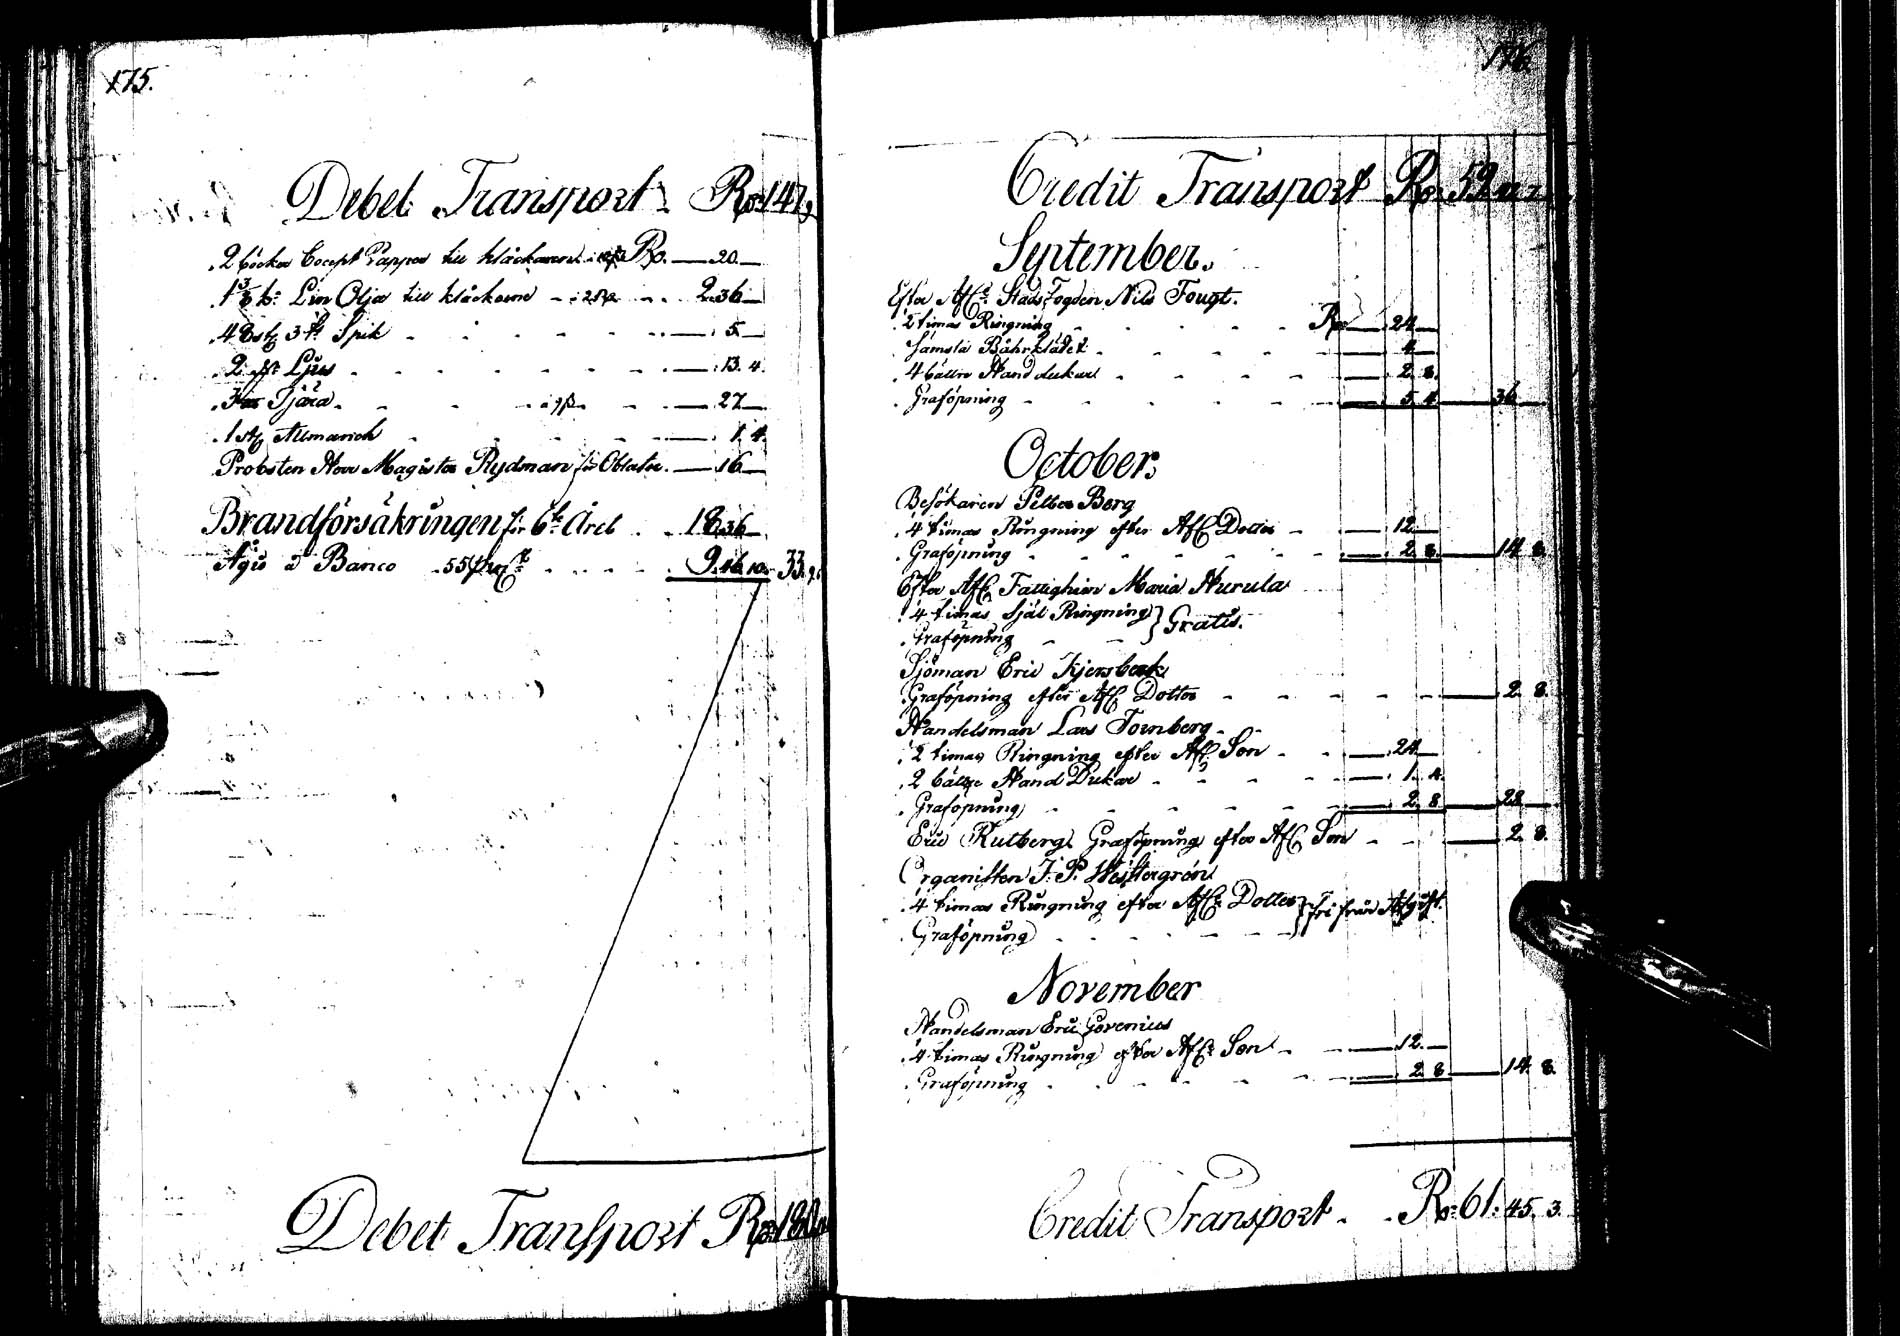 175.
Debet Transport Rdr 147,
2 böcker Concept Papper till klåckaren Rdr. — 20 —
Lin Olja till klåckarne — 2.36 —
3 t. Spik — 5 —
2 st Ljus — 13. 4.
Tjära — 27 —
1 stg Allmanach — 1. 4.
Probsten Herr Magister Rydman för Oblater. — 16 —
Brandförsäkringen för 6te Året 18.36 —
Agio å Banco 55 9.16.10. 33.
Debet Transport Rdr 180
176.
Credit Transport Rdr 59
September.
Efter Afl. Stads Fogden Nils Fougt.
2 timar Ringning Rdr — 24 —
Sämsta Bahrklädet — 4 —
4 bättre Handdukar — 2. 8.
Graföpning — 5. 4 — 36 —
October.
Besökaren Petter Berg
4 timar Ringning efter Afl. Dotter — 12 —
Graföpning — 2. 8. — 14. 8.
Efter Afl. Fattighion Maria Hurula
4 timar Själ Ringning } Gratis.
Graföpning
Sjöman Eric
Graföpning efter Afl. Dotter — 2. 8.
Handelsman Lars Tornberg
2 timar Ringning efter Afl. Son — 24 —
2 bättre Hand Dukar — 1. 4.
Graföpning — 2. 8 — 28 —
Eric Rutberg Graföpning efter Afl. Son — 2. 8.
Organisten J. P. Westergrén
4 timar Ringning efter Afl. Dotter } fri från Afgift.
Graföpning
November
Handelsman Eric
4 timar Ringning efter Afl. Son — 12 —
Graföpning — 2. 8 — 14. 8.
Credit Transport Rdr 61. 45. 3.